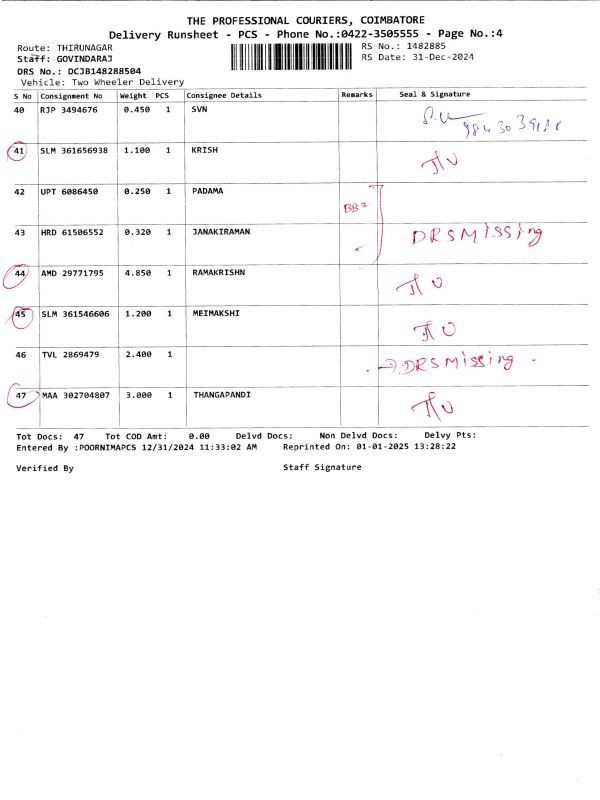 THE PROFESSIONAL COURIERS, COIMBATORE
Delivery Runsheet - PCS - Phone No.:0422-3505555 - Page No.:4
Route: THIRUNAGAR RS No.: 1482885
Staff: GOVINDARAJ RS Date: 31-Dec-2024
DRS No.: DCJB148288504
Vehicle: Two Wheeler Delivery
S No Consignment No Weight PCS Consignee Details Remarks Seal & Signature
40 RJP 3494676 0.450 1 SVN
41 SLM 361656938 1.100 1 KRISH
42 UPT 6086450 0.250 1 PADAMA
43 HRD 61506552 0.320 1 JANAKIRAMAN DRS Missing
44 AMD 29771795 4.850 1 RAMAKRISHN
45 SLM 361546606 1.200 1 MEIMAKSHI
46 TVL 2869479 2.400 1 → DRS Missing
47 MAA 302704807 3.000 1 THANGAPANDI
Tot Docs: 47 Tot COD Amt: 0.00 Delvd Docs: Non Delvd Docs: Delvy Pts:
Entered By :POORNIMAPCS 12/31/2024 11:33:02 AM Reprinted On: 01-01-2025 13:28:22
Verified By Staff Signature